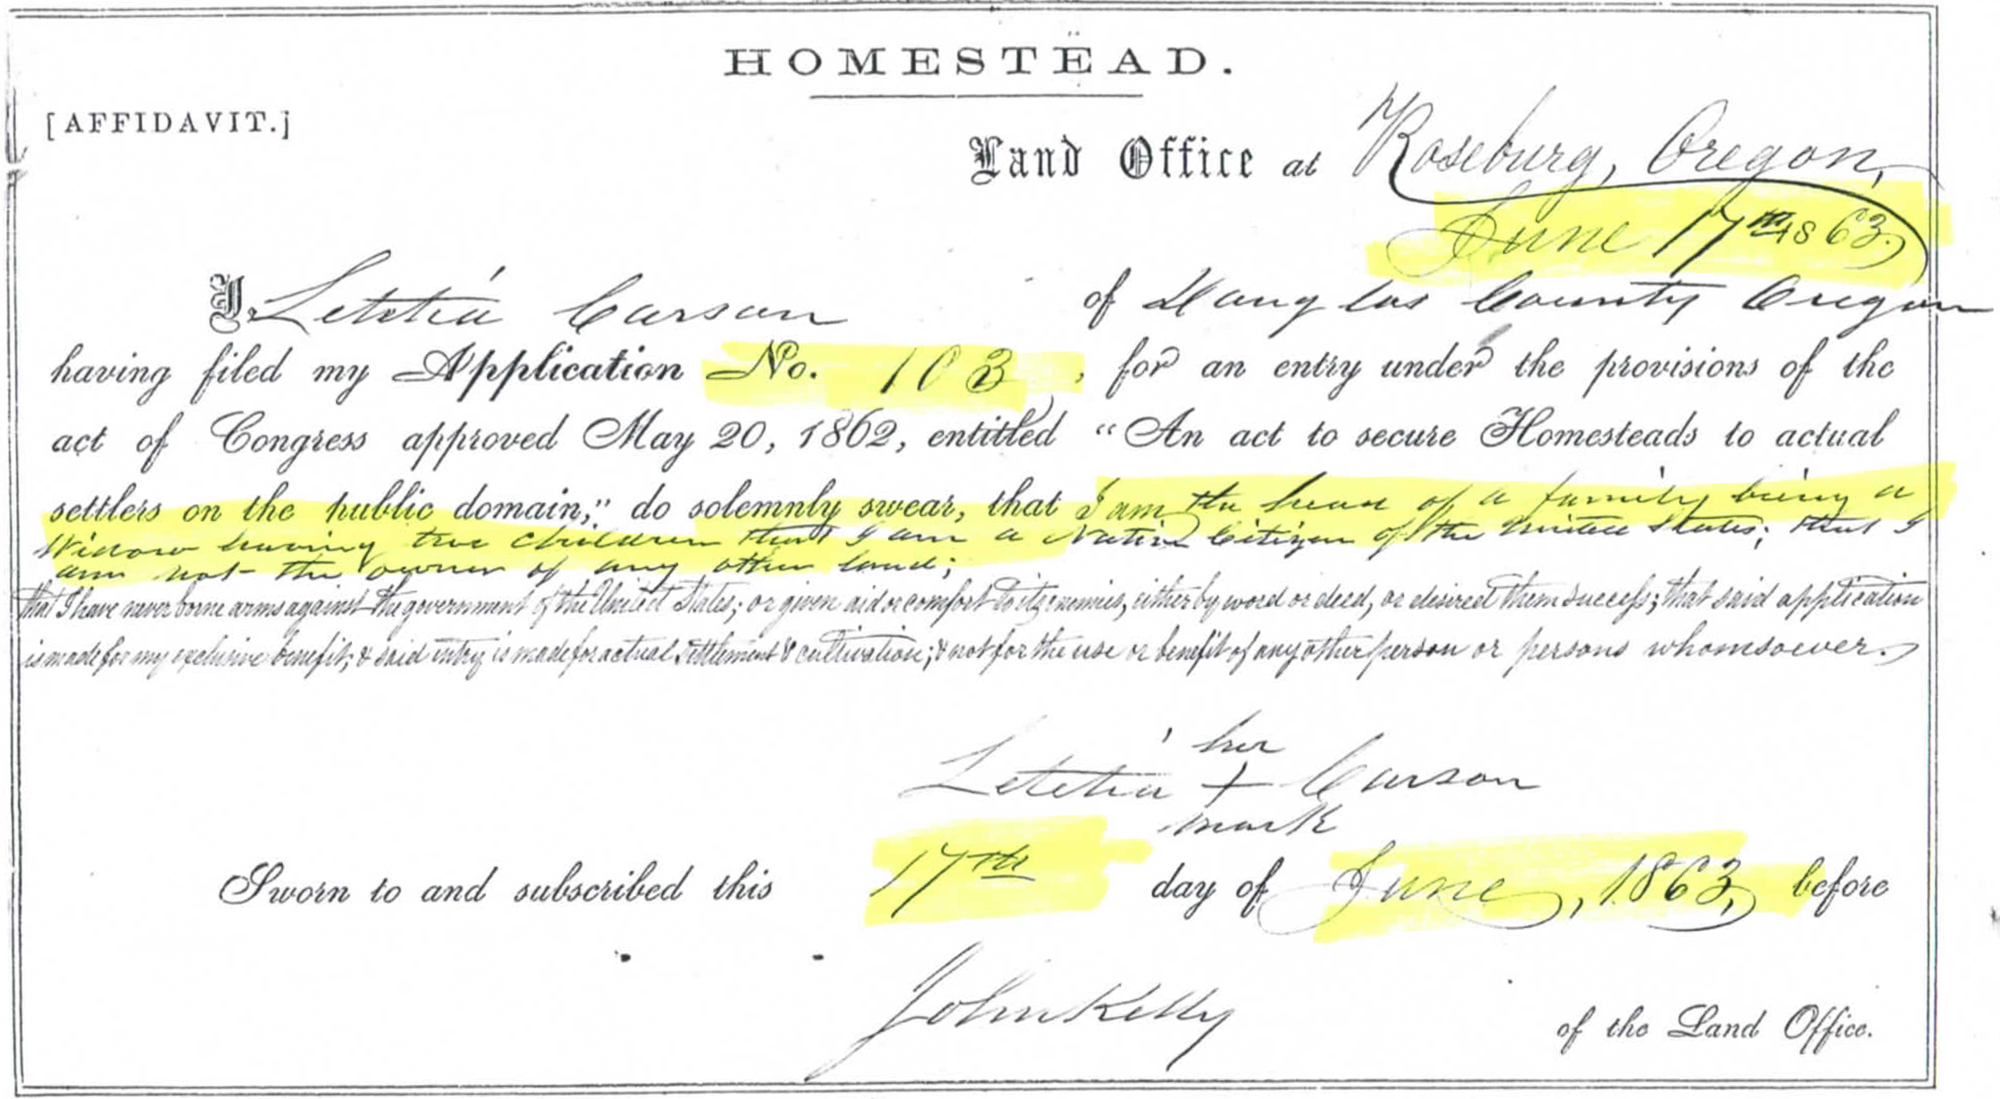 HOMESTEAD.
[AFFIDAVIT.]
Land Office at Roseburg, Oregon,
June 17th 1863.
I, Letitia Carson of Douglas County Oregon
having filed my Application No. 103, for an entry under the provisions of the
act of Congress approved May 20, 1862, entitled "An act to secure Homesteads to actual
settlers on the public domain," do solemnly swear, that I am the head of a family being a
Widow having two children that I am a Native Citizen of the United States; that I
am not the owner of any other land;
that I have never borne arms against the government of the United States; or given aid or comfort to its enemies, either by word or deed, or desired them success; that said application
is made for my exclusive benefit; & said entry is made for actual settlement & cultivation; & not for the use or benefit of any other person or persons whomsoever.
her
Letitia + Carson
mark
Sworn to and subscribed this 17th day of June, 1863, before
John Kelly
of the Land Office.